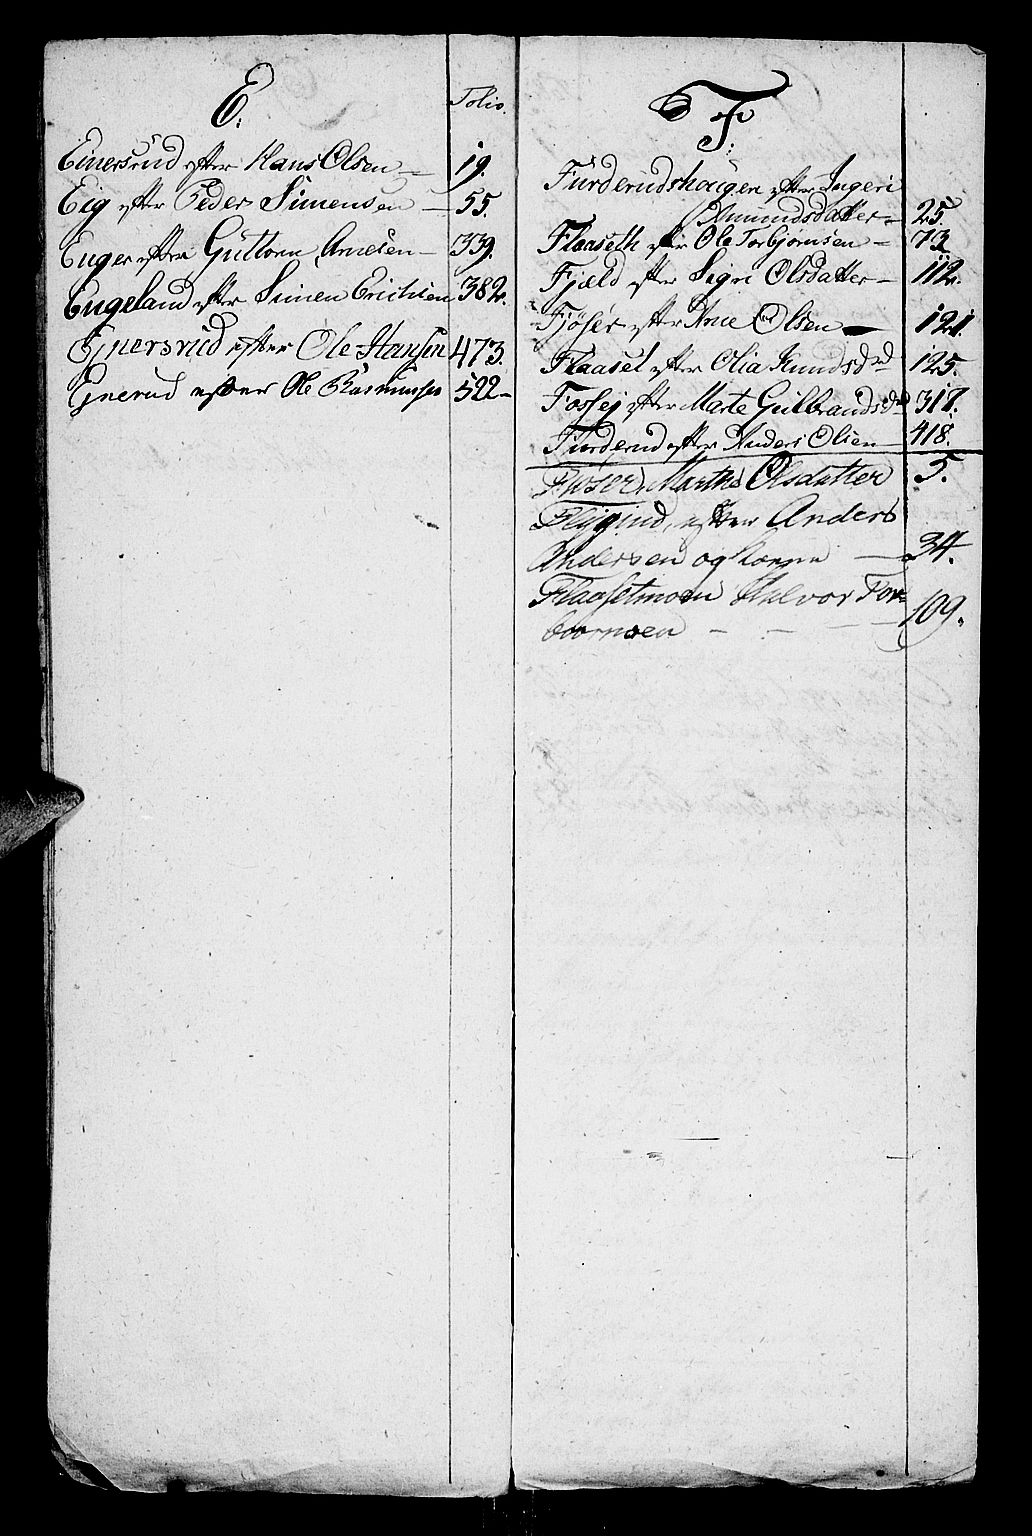 E.
Folio.
Einersrud efter Hans Olsen — 19.
Eig efter Peder Simensen — 55.
Enger efter Guttorm Arnesen — 339.
Engeland efter Simen Erichsen 382.
Ejnersrud efter Ole Hansen 473.
Enerud efter Ole Rasmussen 522 —
F.
Furderudshougen efter Ingeri
Amundsdatter — 25.
Flaaseth efter Ole Torbjørnsen — 73
Fjæld efter Sigri Olsdatter — 112.
Fjøser efter Arne Olsen — 121.
Flaasel efter Olia Knudsd. 125.
Fossej efter Marte Gulbrandsd. 317.
Furderud efter Anders Olsen — 418.
Fiøser, Marthe Olsdatter 5.
Flygind, efter Anders
Andersen og Kone — 34.
Flaasetmoen Halvor Tor-
biørnsen — — — 109.